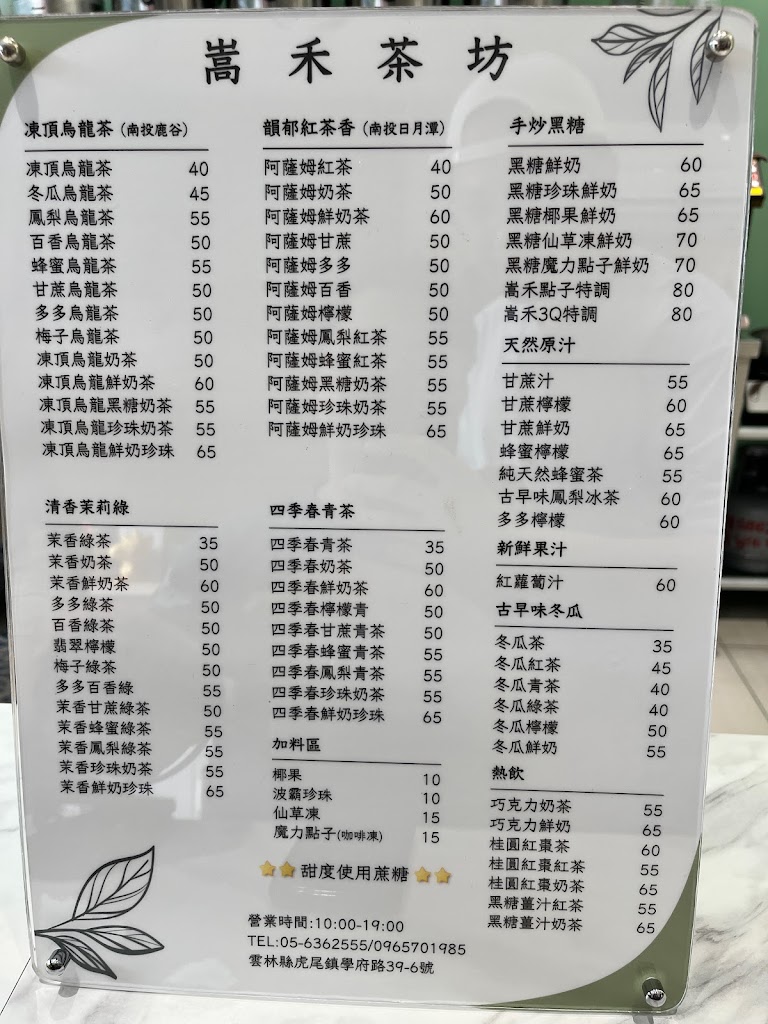 嵩禾茶坊
凍頂烏龍茶 (南投鹿谷)
凍頂烏龍茶 40
冬瓜烏龍茶 45
鳳梨烏龍茶 55
百香烏龍茶 50
蜂蜜烏龍茶 55
甘蔗烏龍茶 50
多多烏龍茶 50
梅子烏龍茶 50
凍頂烏龍奶茶 50
凍頂烏龍鮮奶茶 60
凍頂烏龍黑糖奶茶 55
凍頂烏龍珍珠奶茶 55
凍頂烏龍鮮奶珍珠 65
清香茉莉綠
茉香綠茶 35
茉香奶茶 50
茉香鮮奶茶 60
多多綠茶 50
百香綠茶 50
翡翠檸檬 50
梅子綠茶 50
多多百香綠 55
茉香甘蔗綠茶 50
茉香蜂蜜綠茶 55
茉香鳳梨綠茶 55
茉香珍珠奶茶 55
茉香鮮奶珍珠 65
韻郁紅茶香 (南投日月潭)
阿薩姆紅茶 40
阿薩姆奶茶 50
阿薩姆鮮奶茶 60
阿薩姆甘蔗 50
阿薩姆多多 50
阿薩姆百香 50
阿薩姆檸檬 50
阿薩姆鳳梨紅茶 55
阿薩姆蜂蜜紅茶 55
阿薩姆黑糖奶茶 55
阿薩姆珍珠奶茶 55
阿薩姆鮮奶珍珠 65
四季春青茶
四季春青茶 35
四季春奶茶 50
四季春鮮奶茶 60
四季春檸檬青 50
四季春甘蔗青茶 50
四季春蜂蜜青茶 55
四季春鳳梨青茶 55
四季春珍珠奶茶 55
四季春鮮奶珍珠 65
加料區
椰果 10
波霸珍珠 10
仙草凍 15
魔力點子(咖啡凍) 15
⭐⭐甜度使用蔗糖⭐⭐
營業時間:10:00-19:00
TEL:05-6362555/0965701985
雲林縣虎尾鎮學府路39-6號
手炒黑糖
黑糖鮮奶 60
黑糖珍珠鮮奶 65
黑糖椰果鮮奶 65
黑糖仙草凍鮮奶 70
黑糖魔力點子鮮奶 70
嵩禾點子特調 80
嵩禾3Q特調 80
天然原汁
甘蔗汁 55
甘蔗檸檬 60
甘蔗鮮奶 65
蜂蜜檸檬 65
純天然蜂蜜茶 55
古早味鳳梨冰茶 60
多多檸檬 60
新鮮果汁
紅蘿蔔汁 60
古早味冬瓜
冬瓜茶 35
冬瓜紅茶 45
冬瓜青茶 40
冬瓜綠茶 40
冬瓜檸檬 50
冬瓜鮮奶 55
熱飲
巧克力奶茶 55
巧克力鮮奶 65
桂圓紅棗茶 60
桂圓紅棗紅茶 55
桂圓紅棗奶茶 65
黑糖薑汁紅茶 55
黑糖薑汁奶茶 65